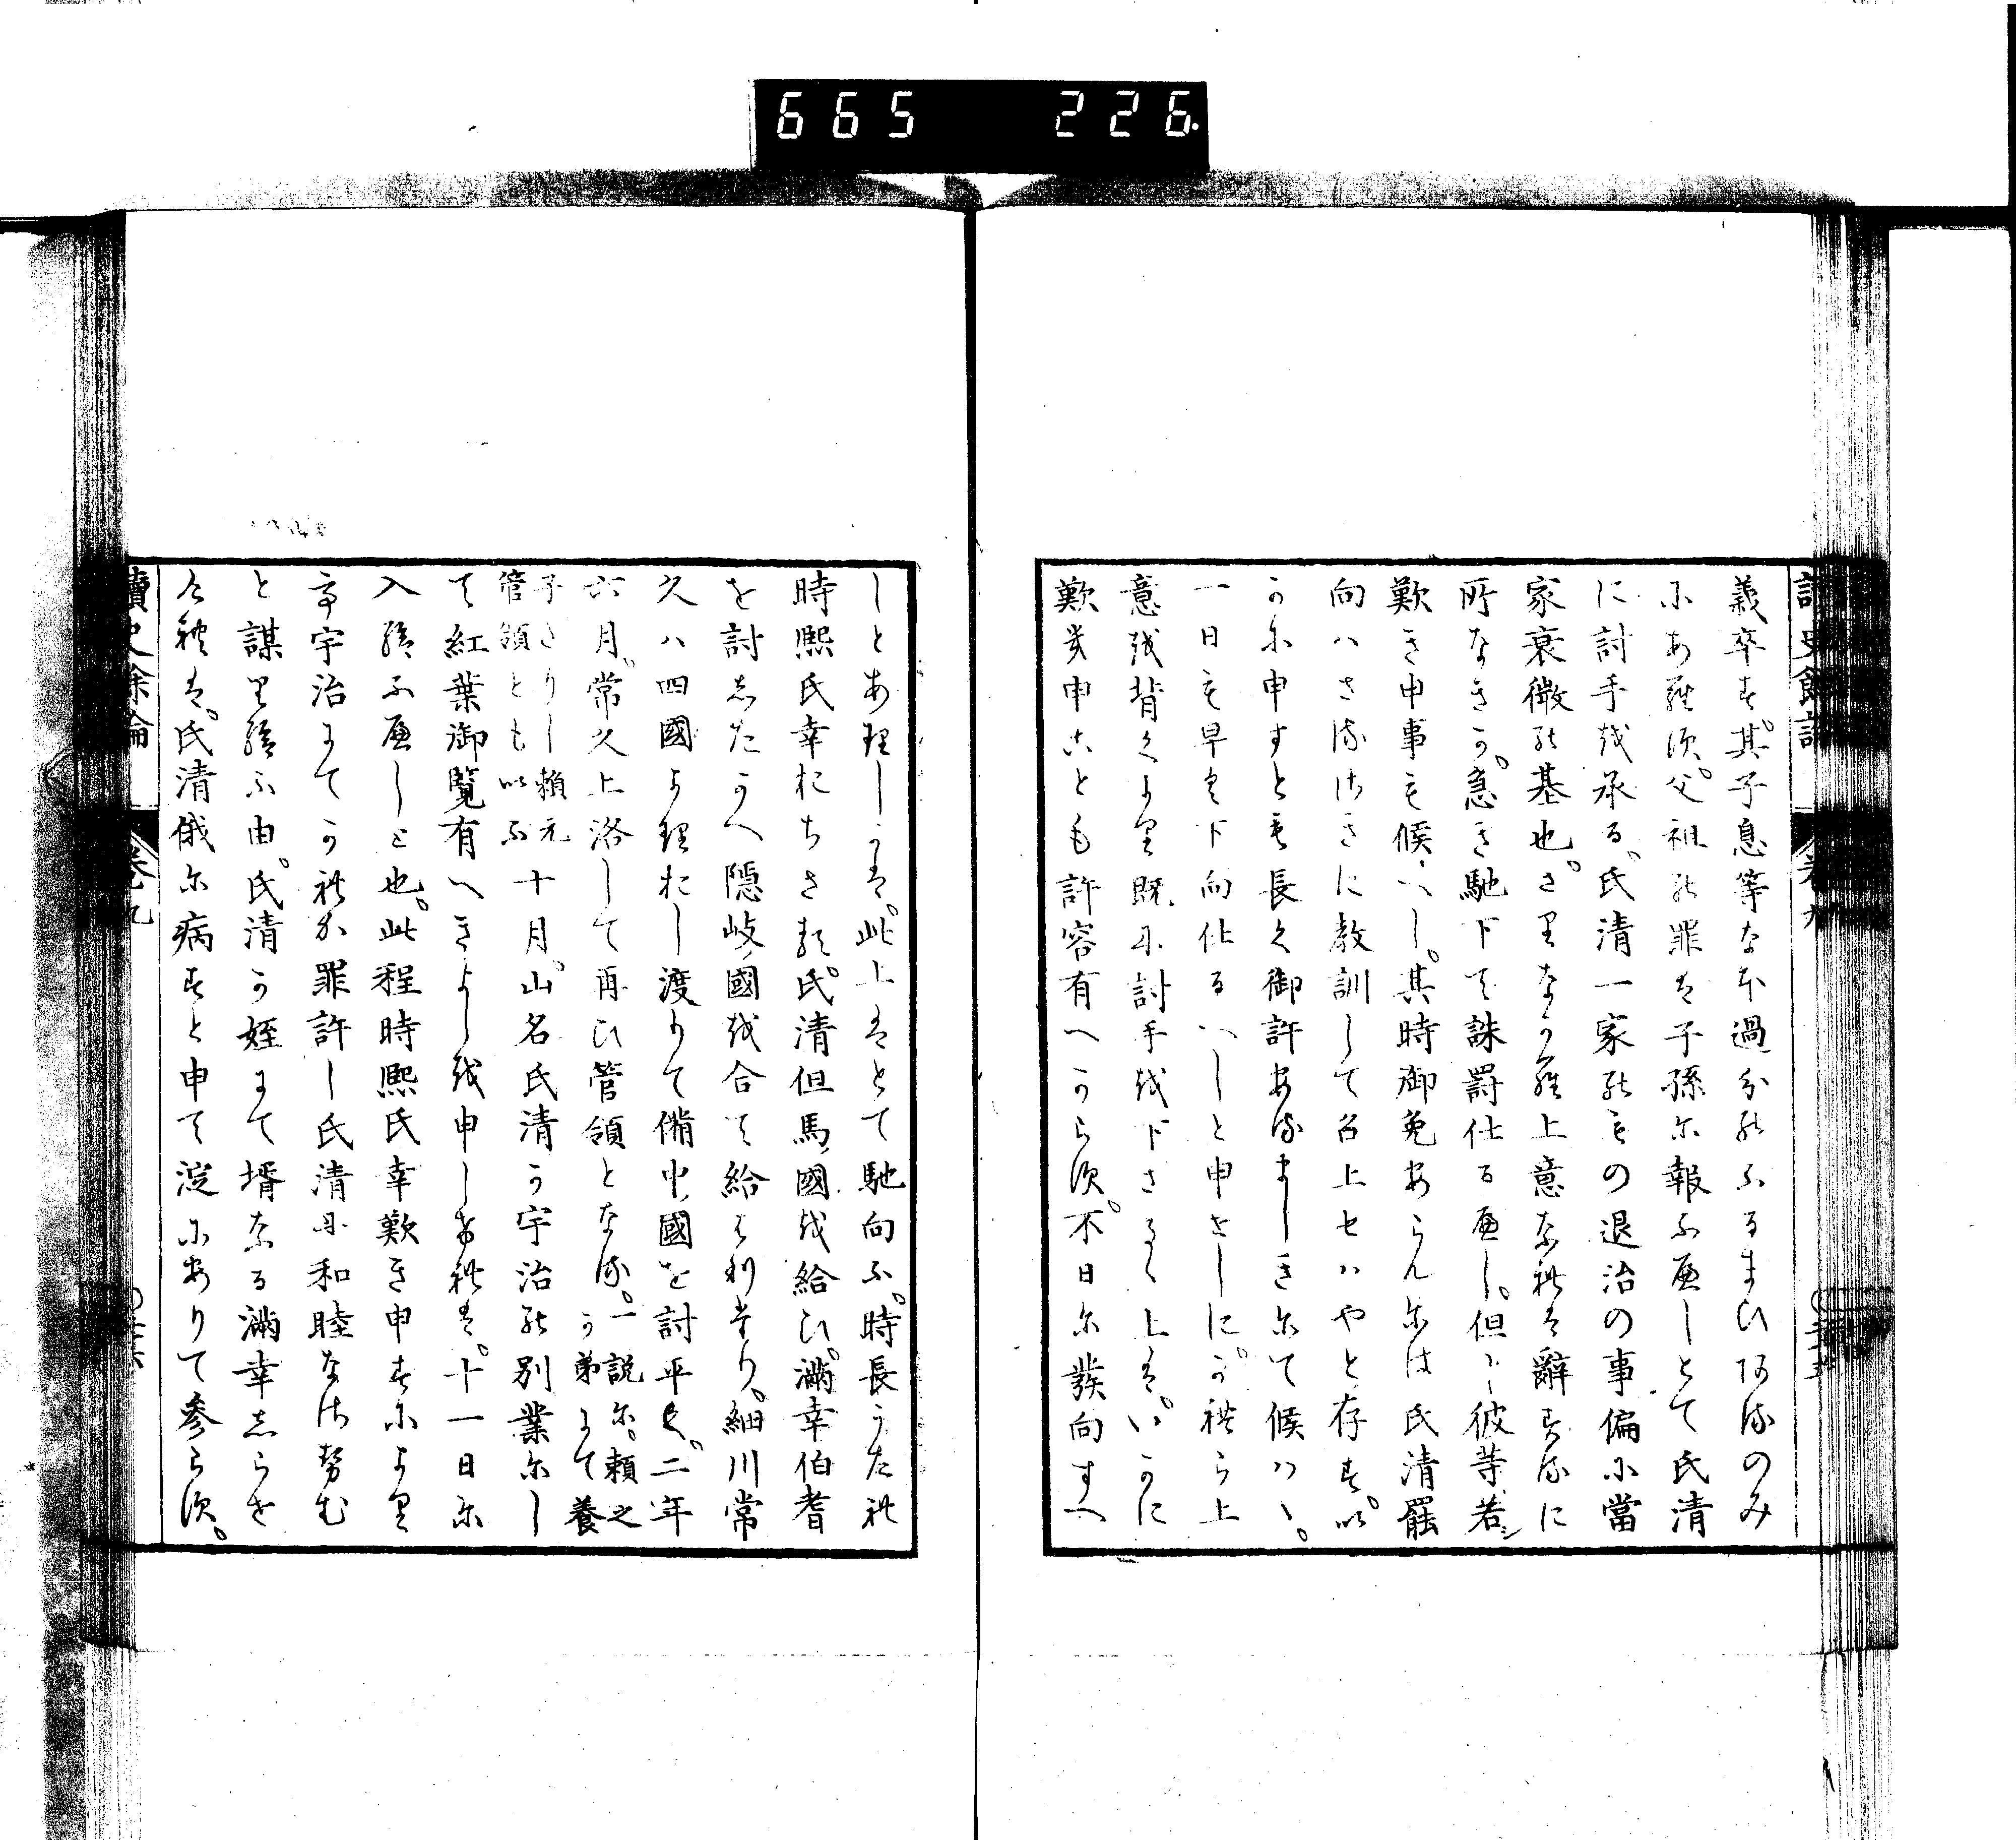 665 226.
義卒す。其子息等なほ過分のふるまひ有るのみ
にあらす。父祖の罪は子孫に報ふへしとて氏清
に討手を承る。氏清一家のもの退治の事偏に當
家衰微の基也。さりなから上意なれは辭するに
所なきか。急き馳下て誅罰仕るへし。但し彼等若シ
歎き申事も候へし。其時御免あらんには氏清罷
向ハさるさきに教訓して召上セハやと存す。い
かに申すとも長く御許あるましきにて候ハヽ。
一日も早く下向仕るへしと申せしに。かれら上
意を背くより既に討手を下さるヽ上は。いかに
歎き申ことも許容有へからす。不日に發向すへ
しとありしかは。此上はとて馳向ふ。時長うたれ
時熈氏幸おちさる。氏清但馬國を給ひ。滿幸伯耆
を討したかへ隱岐國を合て給はりけり。細川常
久ハ四國よりおし渡りて備中國を討平く。二年
六月。常久上洛して再ひ管領となる。一説に。頼之か弟にて養
子なりし頼元管領とも以ふ十月。山名氏清か宇治の別業にし
て紅葉御覽有へきよしを申しけれは。十一日に
入給ふへしと也。此程時熈氏幸歎き申すにより
て宇治にてかれか罪許し氏清に和睦なさせむ
と謀り給ふ由。氏清か姪にて壻なる滿幸しらせ
けれは。氏清俄に病すと申て淀にありて參らす。
讀史餘論 卷九